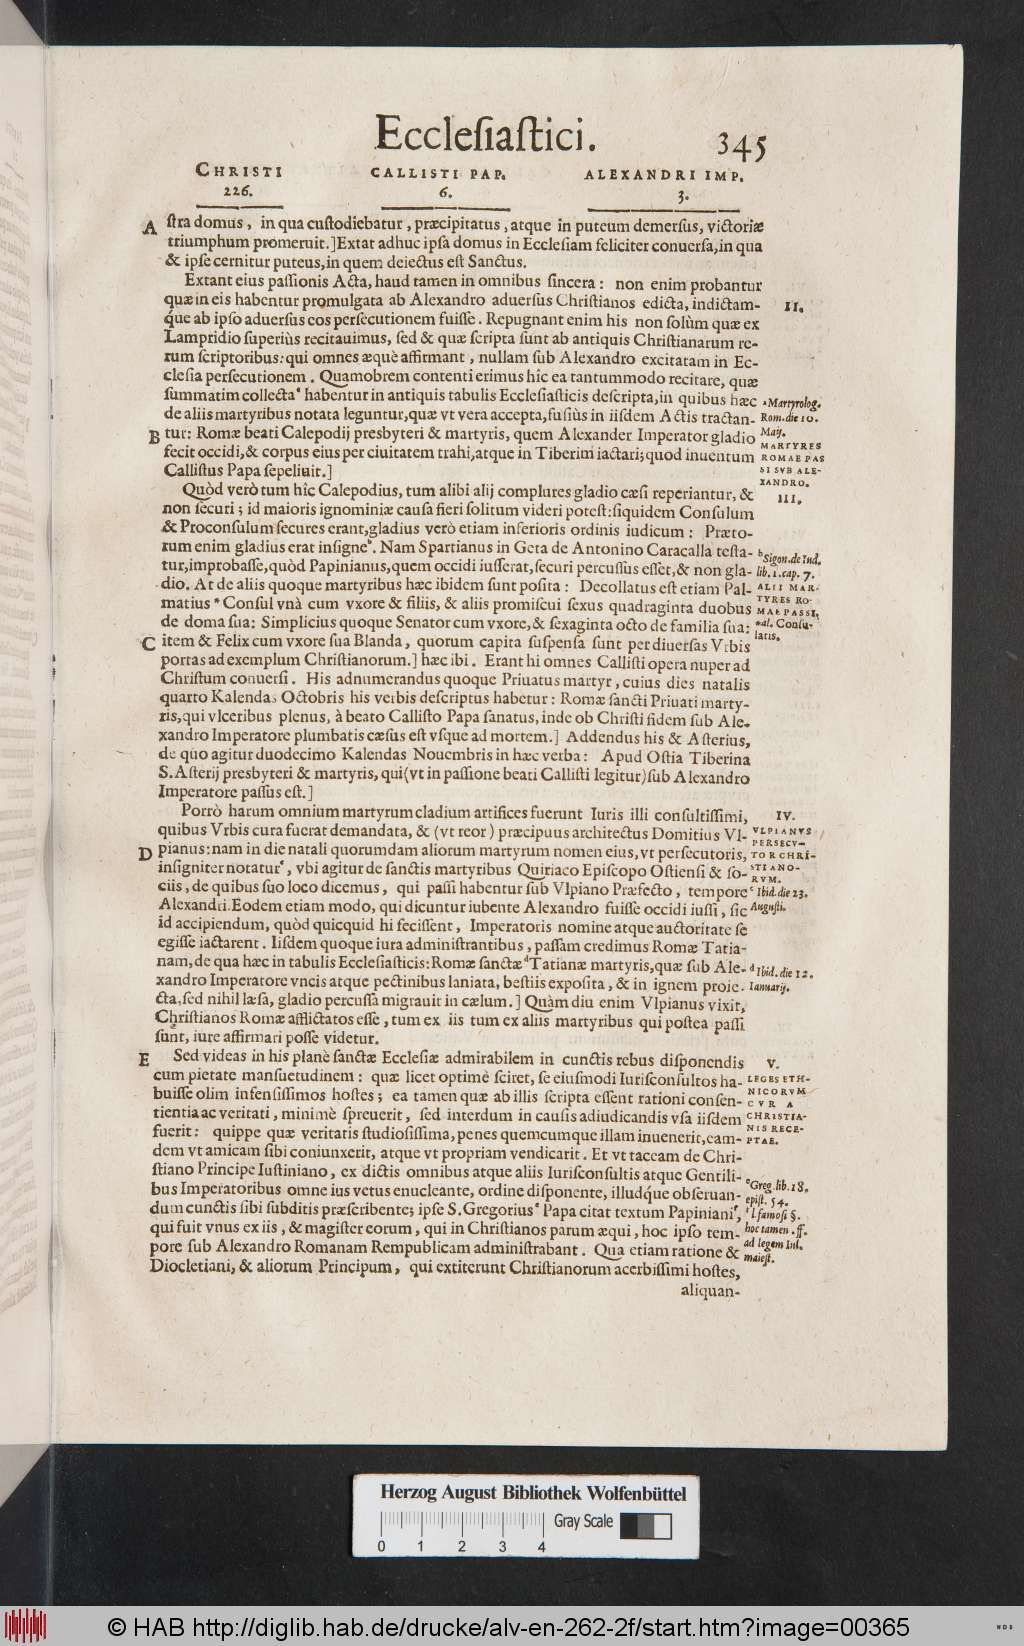 Eccleſiaſtici. 345
CHRISTI CALLISTI PAP. ALEXANDRI IMP.
226. 6. 3.
A ſtra domus, in qua cuſtodiebatur, præcipitatus, atque in puteum demerſus, victoriæ
triumphum promeruit.] Extat adhuc ipſa domus in Eccleſiam feliciter conuerſa, in qua
& ipſe cernitur puteus, in quem deiectus eſt Sanctus.
Extant eius paſſionis Acta, haud tamen in omnibus ſincera: non enim probantur
quæ in eis habentur promulgata ab Alexandro aduerſus Chriſtianos edicta, indictam-
II.
q́ue ab ipſo aduerſus eos perſecutionem fuiſſe. Repugnant enim his non ſolùm quæ ex
Lampridio ſuperiùs recitauimus, ſed & quæ ſcripta ſunt ab antiquis Chriſtianarum re-
rum ſcriptoribus: qui omnes æquè affirmant, nullam ſub Alexandro excitatam in Ec-
cleſia perſecutionem. Quamobrem contenti erimus hic ea tantummodo recitare, quæ
ſummatim collecta ᵃ habentur in antiquis tabulis Eccleſiaſticis deſcripta, in quibus hæc
ᵃ Martyrolog.
de aliis martyribus notata leguntur, quæ vt vera accepta, fuſiùs in iiſdem Actis tractan-
Rom. die 10.
B tur: Romæ beati Calepodij presbyteri & martyris, quem Alexander Imperator gladio
Maij.
MARTYRES
fecit occidi, & corpus eius per ciuitatem trahi, atque in Tiberim iactari; quod inuentum
ROMAE PAS
Calliſtus Papa ſepeliuit.]
SI SVB ALE-
XANDRO.
Quòd verò tum hîc Calepodius, tum alibi alij complures gladio cæſi reperiantur, &
III.
non ſecuri; id maioris ignominiæ cauſa fieri ſolitum videri poteſt: ſiquidem Conſulum
& Proconſulum ſecures erant, gladius verò etiam inferioris ordinis iudicum: Præto-
rum enim gladius erat inſigne ᵇ. Nam Spartianus in Geta de Antonino Caracalla teſta-
ᵇ Sigon. de Iud.
tur, improbaſſe, quòd Papinianus, quem occidi iuſſerat, ſecuri percuſſus eſſet, & non gla-
lib. 1. cap. 7.
dio. At de aliis quoque martyribus hæc ibidem ſunt poſita: Decollatus eſt etiam Pal-
ALII MAR-
TYRES RO-
matius * Conſul vnà cum vxore & filiis, & aliis promiſcui ſexus quadraginta duobus
MAE PASSI.
de domo ſua: Simplicius quoque Senator cum vxore, & ſexaginta octo de familia ſua:
*al. Conſu-
laris.
C item & Felix cum vxore ſua Blanda, quorum capita ſuſpenſa ſunt per diuerſas Vrbis
portas ad exemplum Chriſtianorum.] hæc ibi. Erant hi omnes Calliſti opera nuper ad
Chriſtum conuerſi. His adnumerandus quoque Priuatus martyr, cuius dies natalis
quarto Kalendas Octobris his verbis deſcriptus habetur: Romæ ſancti Priuati marty-
ris, qui vlceribus plenus, à beato Calliſto Papa ſanatus, inde ob Chriſti fidem ſub Ale-
xandro Imperatore plumbatis cæſus eſt vſque ad mortem.] Addendus his & Aſterius,
de quo agitur duodecimo Kalendas Nouembris in hæc verba: Apud Oſtia Tiberina
S. Aſterij presbyteri & martyris, qui (vt in paſſione beati Calliſti legitur) ſub Alexandro
Imperatore paſſus eſt.]
Porrò harum omnium martyrum cladium artifices fuerunt Iuris illi conſultiſſimi,
IV.
quibus Vrbis cura fuerat demandata, & (vt reor) præcipuus architectus Domitius Vl-
VLPIANVS
PERSECV-
D pianus: nam in die natali quorumdam aliorum martyrum nomen eius, vt perſecutoris,
TOR CHRI-
inſigniter notatur ᶜ, vbi agitur de ſanctis martyribus Quiriaco Epiſcopo Oſtienſi & ſo-
STIANO-
RVM.
ciis, de quibus ſuo loco dicemus, qui paſſi habentur ſub Vlpiano Præfecto, tempore
ᶜ Ibid. die 23.
Alexandri. Eodem etiam modo, qui dicuntur iubente Alexandro fuiſſe occidi iuſſi, ſic
Auguſti.
id accipiendum, quòd quicquid hi feciſſent, Imperatoris nomine atque auctoritate ſe
egiſſe iactarent. Iiſdem quoque iura adminiſtrantibus, paſſam credimus Romæ Tatia-
nam, de qua hæc in tabulis Eccleſiaſticis: Romæ ſanctæ ᵈ Tatianæ martyris, quæ ſub Ale-
ᵈ Ibid. die 12.
xandro Imperatore vncis atque pectinibus laniata, beſtiis expoſita, & in ignem proie-
Ianuarij.
cta, ſed nihil læſa, gladio percuſſa migrauit in cælum.] Quàm diu enim Vlpianus vixit,
Chriſtianos Romæ afflictatos eſſe, tum ex iis tum ex aliis martyribus qui poſtea paſſi
ſunt, iure affirmari poſſe videtur.
E Sed videas in his planè ſanctæ Eccleſiæ admirabilem in cunctis rebus diſponendis
V.
cum pietate manſuetudinem: quæ licet optimè ſciret, ſe eiuſmodi Iuriſconſultos ha-
LEGES ETH-
buiſſe olim infenſiſſimos hoſtes; ea tamen quæ ab illis ſcripta eſſent rationi conſen-
NICORVM
CVR A
tientia ac veritati, minimè ſpreuerit, ſed interdum in cauſis adiudicandis vſa iiſdem
CHRISTIA-
fuerit: quippe quæ veritatis ſtudioſiſſima, penes quemcumque illam inuenerit, eam-
NIS RECE-
PTAE.
dem vt amicam ſibi coniunxerit, atque vt propriam vendicarit. Et vt taceam de Chri-
ſtiano Principe Iuſtiniano, ex dictis omnibus atque aliis Iuriſconſultis atque Gentili-
bus Imperatoribus omne ius vetus enucleante, ordine diſponente, illudq́ue obſeruan-
ᵉ Greg. lib. 18.
epiſt. 54.
dum cunctis ſibi ſubditis præſcribente; ipſe S. Gregorius ᵉ Papa citat textum Papiniani ᶠ,
ᶠ l. famoſi §.
qui fuit vnus ex iis, & magiſter eorum, qui in Chriſtianos parum æqui, hoc ipſo tem-
hoc tamen. ff.
pore ſub Alexandro Romanam Rempublicam adminiſtrabant. Qua etiam ratione &
ad legem Iul.
Diocletiani, & aliorum Principum, qui extiterunt Chriſtianorum acerbiſſimi hoſtes,
maieſt.
aliquan-
Herzog August Bibliothek Wolfenbüttel
Gray Scale
0 1 2 3 4
© HAB http://diglib.hab.de/drucke/alv-en-262-2f/start.htm?image=00365